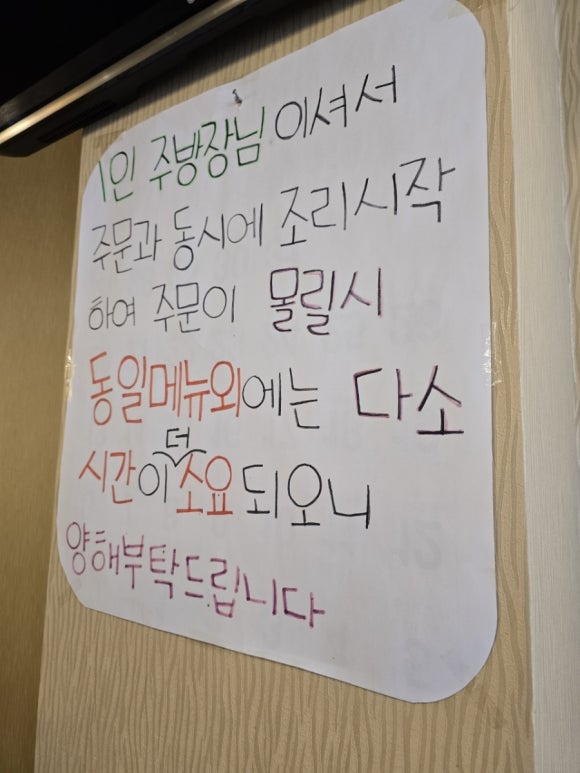 1인 주방장님 이셔서
주문과 동시에 조리시작
하여 주문이 몰릴시
동일메뉴외에는 다소
시간이 더 소요 되오니
양해부탁드립니다